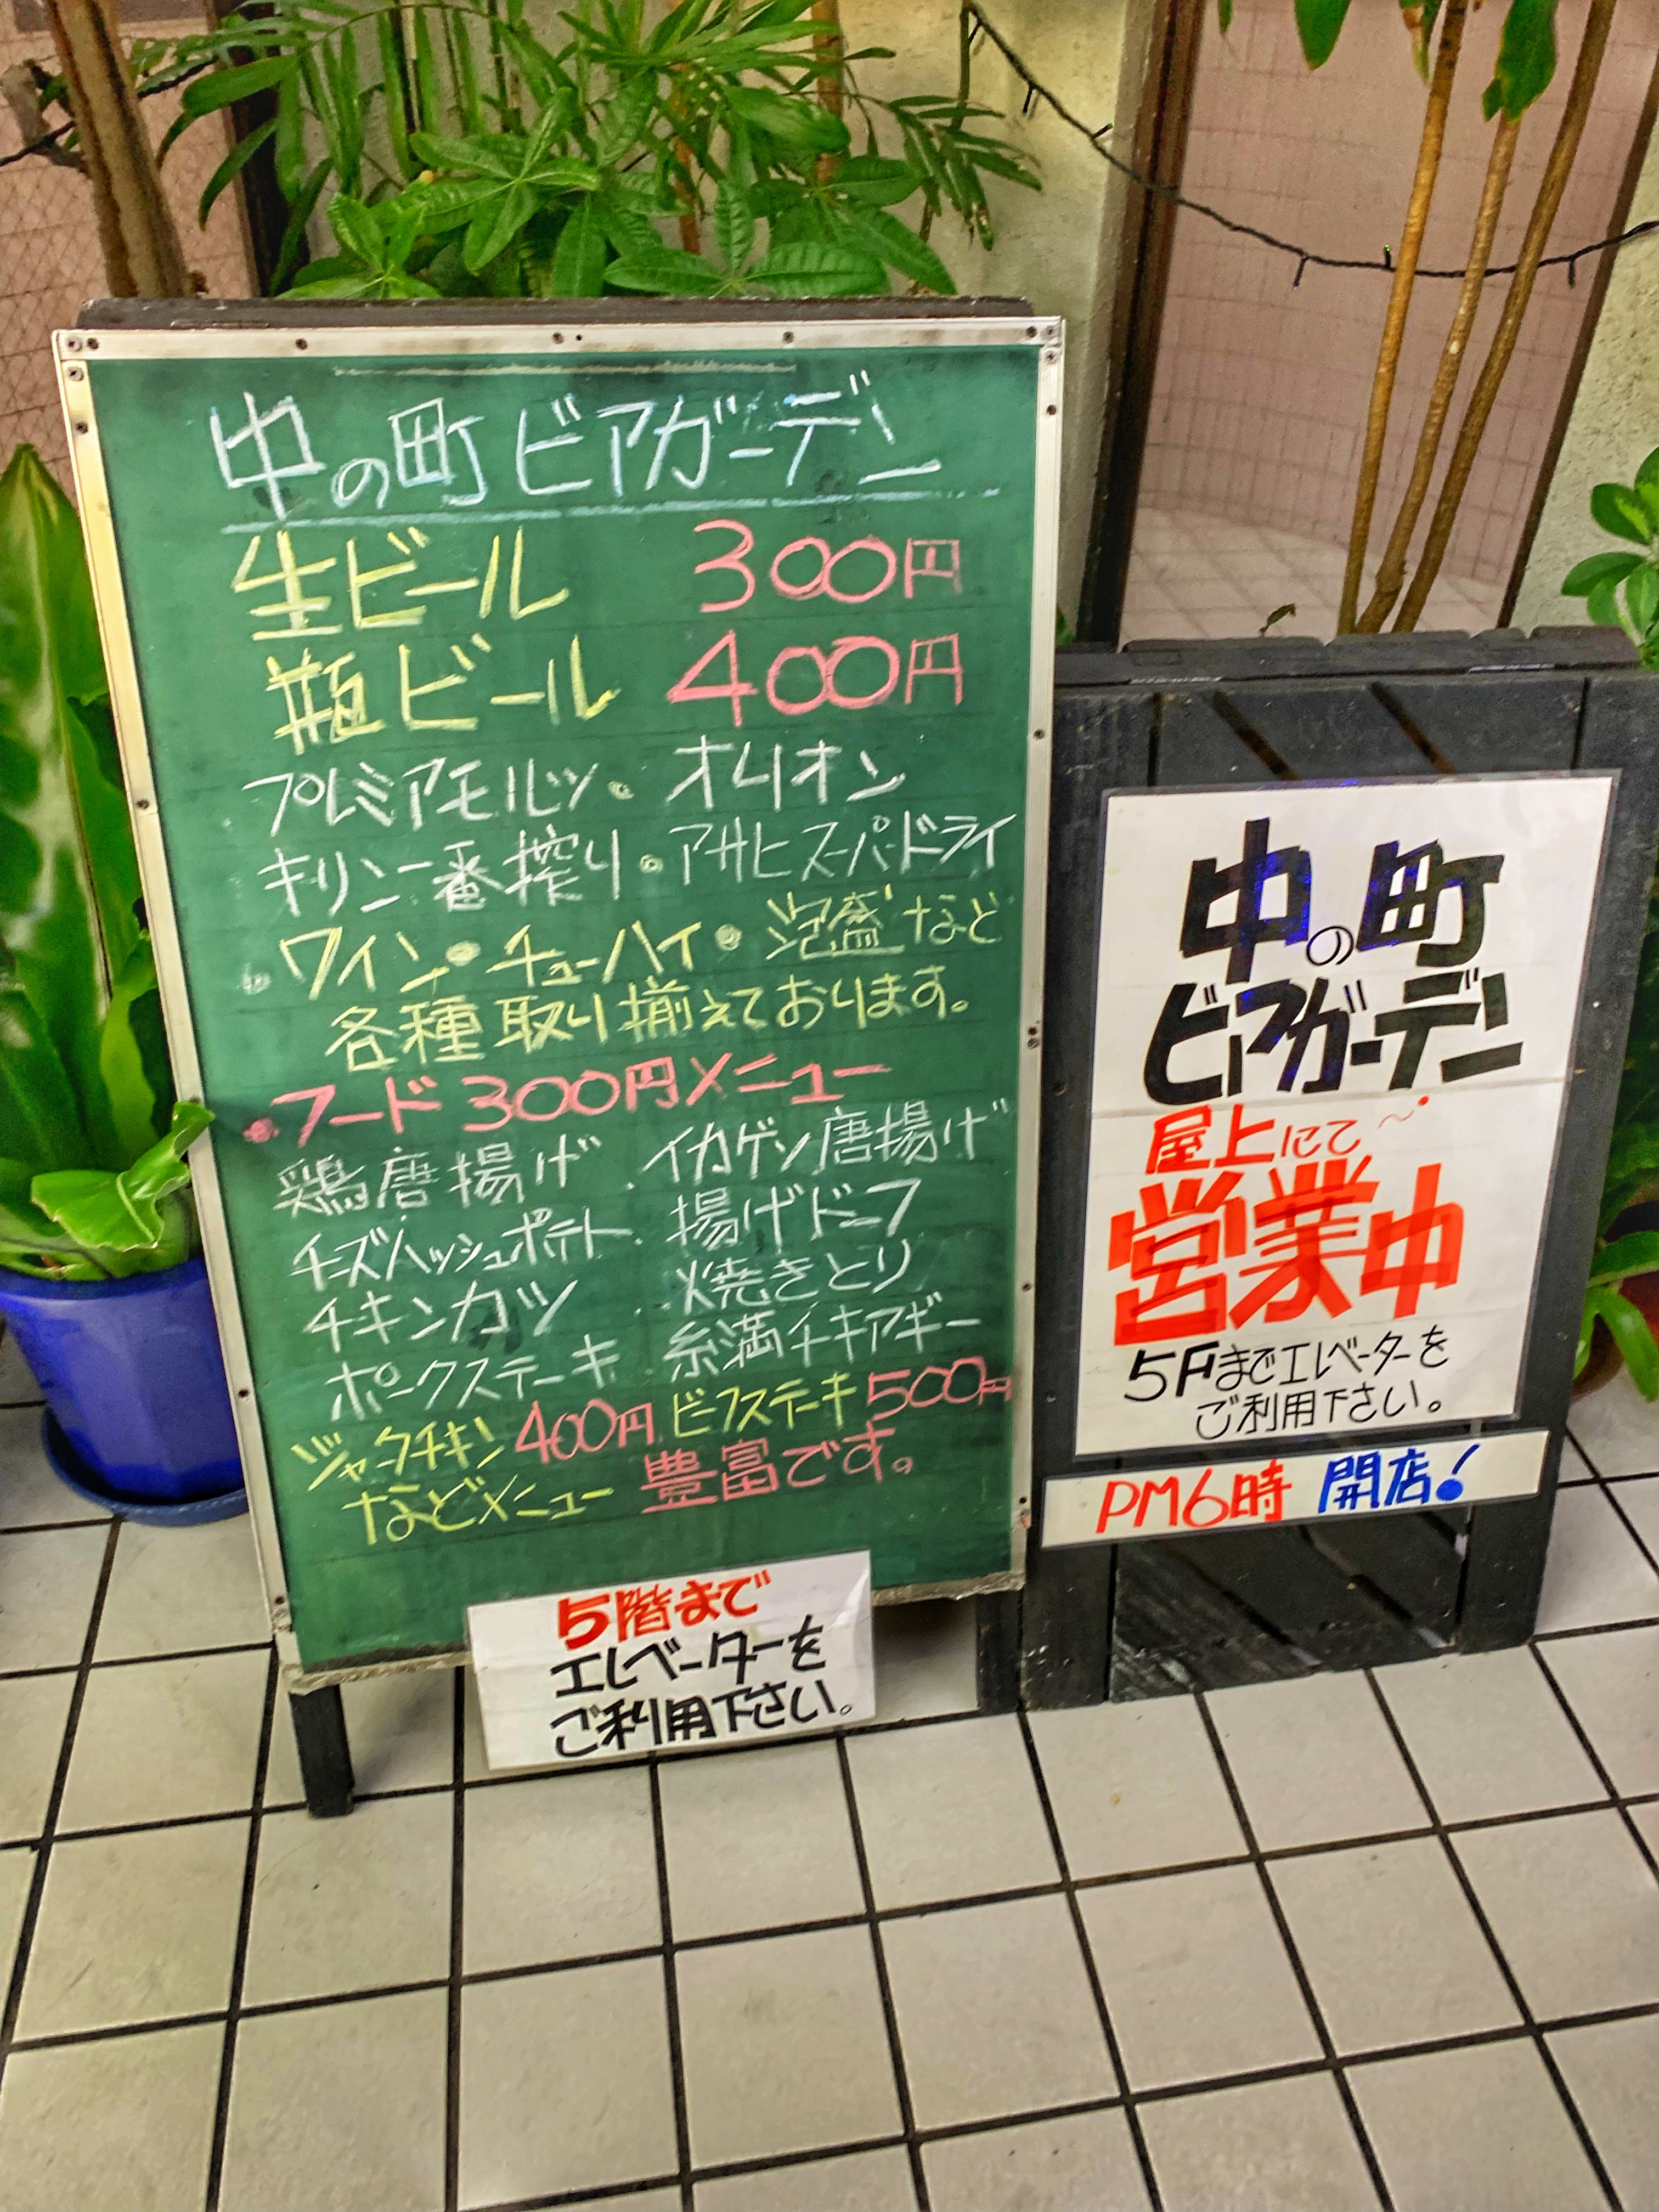 中の町ビアガーデン
生ビール 300円
瓶ビール 400円
プレミアモルツ・オリオン
キリン一番搾り・アサヒスーパードライ
ワイン・チューハイ・泡盛など
各種取り揃えております。
・フード300円メニュー
鶏唐揚げ．イカゲソ唐揚げ
チーズハッシュポテト．揚げドーフ
チキンカツ．．焼きとり
ポークステーキ．糸満チキアギー
ジャークチキン400円．ビーフステーキ500円
などメニュー豊富です。
5階まで
エレベーターを
ご利用下さい。
中の町
ビアガーデン
屋上にて〜
営業中
5Fまでエレベーターを
ご利用下さい。
PM6時 開店!